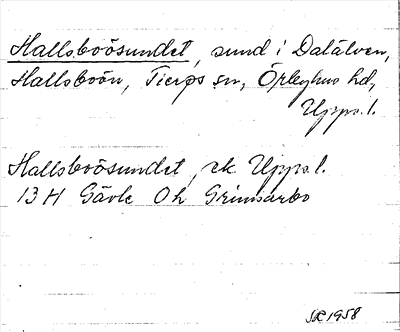 Hallsboösundet, sund i Dalälven,
Hallsboön, Tierps sn, Örbyhus hd,
Upps. l.
Hallsboösundet, ek Upps. l.
13 H Gävle Oh Grinnarbo
SÆ 1958